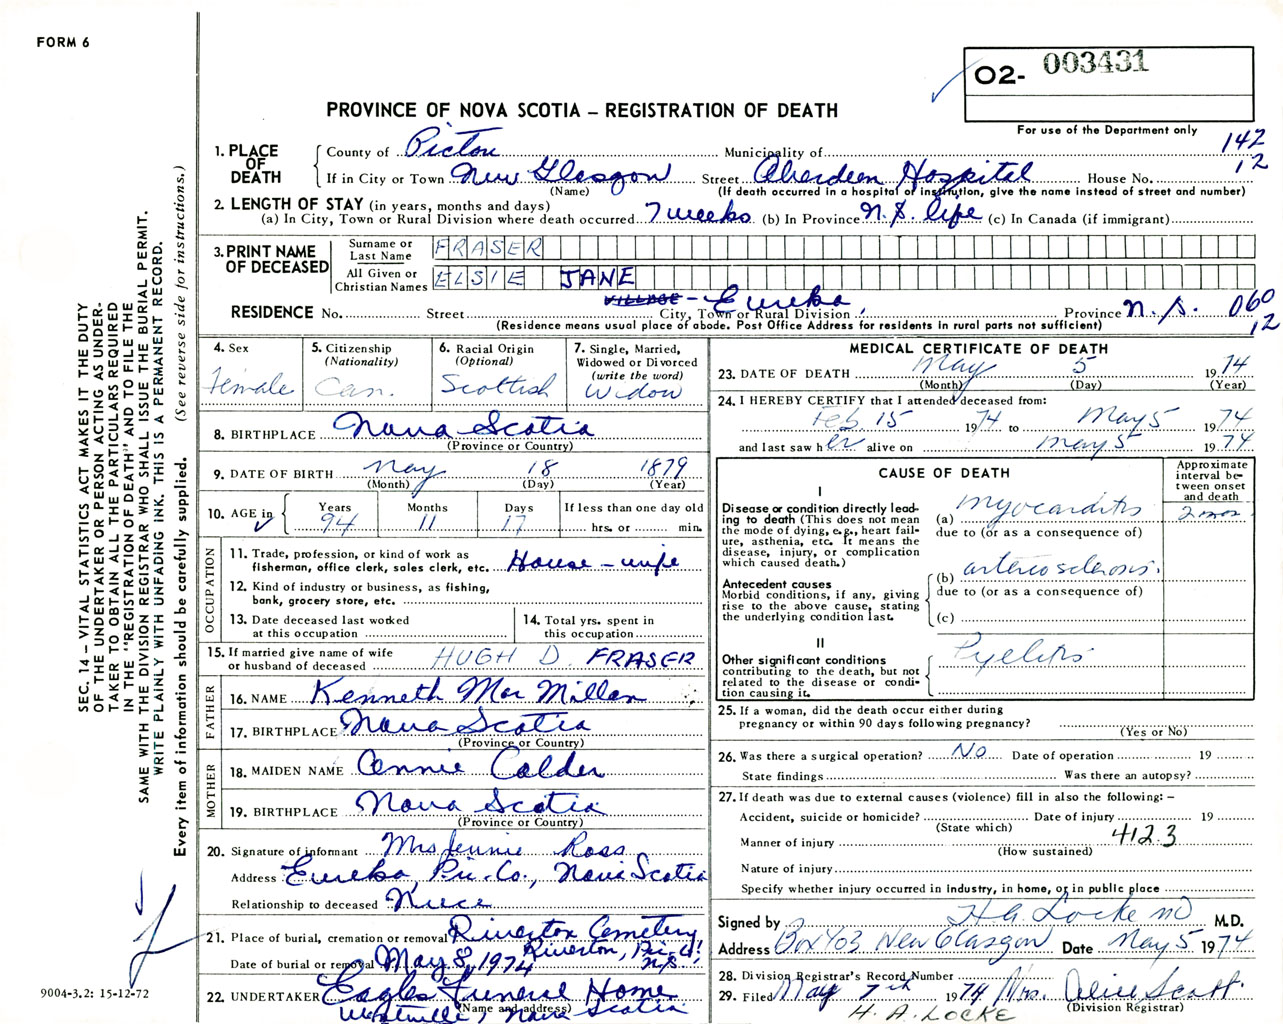 FORM 6
O2- 003431
PROVINCE OF NOVA SCOTIA – REGISTRATION OF DEATH
For use of the Department only
142
12
1. PLACE OF DEATH
County of Pictou Municipality of
If in City or Town New Glasgow Street Aberdeen Hospital House No.
(Name) (If death occurred in a hospital or institution, give the name instead of street and number)
2. LENGTH OF STAY (in years, months and days)
(a) In City, Town or Rural Division where death occurred 7 weeks (b) In Province N.S. life (c) In Canada (if immigrant)
3. PRINT NAME OF DECEASED
Surname or Last Name FRASER
All Given or Christian Names ELSIE JANE
VILLAGE - Eureka
RESIDENCE No. Street City, Town or Rural Division Province N.S. 060
12
(Residence means usual place of abode. Post Office Address for residents in rural parts not sufficient)
4. Sex
Female
5. Citizenship
(Nationality)
Can.
6. Racial Origin
(Optional)
Scottish
7. Single, Married,
Widowed or Divorced
(write the word)
Widow
8. BIRTHPLACE Nova Scotia
(Province or Country)
9. DATE OF BIRTH May 18 1879
(Month) (Day) (Year)
10. AGE in
Years Months Days If less than one day old
94 11 17 hrs. or min.
OCCUPATION
11. Trade, profession, or kind of work as
fisherman, office clerk, sales clerk, etc. House-wife
12. Kind of industry or business, as fishing,
bank, grocery store, etc.
13. Date deceased last worked
at this occupation
14. Total yrs. spent in
this occupation
15. If married give name of wife
or husband of deceased HUGH D. FRASER
FATHER
16. NAME Kenneth MacMillan
17. BIRTHPLACE Nova Scotia
(Province or Country)
MOTHER
18. MAIDEN NAME Annie Calder
19. BIRTHPLACE Nova Scotia
(Province or Country)
20. Signature of informant Mrs Jennie Ross
Address Eureka, Pic. Co., Nova Scotia
Relationship to deceased Niece
21. Place of burial, cremation or removal Riverton Cemetery
Riverton, Pic. Co. N.S.
Date of burial or removal May 8, 1974
22. UNDERTAKER Eagles Funeral Home
(Name and address)
Westville, Nova Scotia
MEDICAL CERTIFICATE OF DEATH
23. DATE OF DEATH May 5 1974
(Month) (Day) (Year)
24. I HEREBY CERTIFY that I attended deceased from:
Feb. 15 1974 to May 5 1974
and last saw her alive on May 5 1974
CAUSE OF DEATH
Approximate
interval be-
tween onset
and death
I
Disease or condition directly lead-
ing to death (This does not mean
the mode of dying, e.g., heart fail-
ure, asthenia, etc. It means the
disease, injury, or complication
which caused death.)
(a) Myocarditis 2 mos
due to (or as a consequence of)
Antecedent causes
Morbid conditions, if any, giving
rise to the above cause, stating
the underlying condition last.
(b) arteriosclerosis.
due to (or as a consequence of)
(c)
II
Other significant conditions
contributing to the death, but not
related to the disease or condi-
tion causing it.
Pyelitis
25. If a woman, did the death occur either during
pregnancy or within 90 days following pregnancy?
(Yes or No)
26. Was there a surgical operation? No Date of operation 19
State findings Was there an autopsy?
27. If death was due to external causes (violence) fill in also the following: –
Accident, suicide or homicide? Date of injury 19
(State which)
412.3
Manner of injury
(How sustained)
Nature of injury
Specify whether injury occurred in industry, in home, or in public place
Signed by H A Locke MD M.D.
Address Box 403 New Glasgow Date May 5 1974
28. Division Registrar's Record Number
29. Filed May 7th 1974 Mrs. Alice Scott
(Division Registrar)
H. A. LOCKE
SEC. 14 – VITAL STATISTICS ACT MAKES IT THE DUTY
OF THE UNDERTAKER OR PERSON ACTING AS UNDER-
TAKER TO OBTAIN ALL THE PARTICULARS REQUIRED
IN THE "REGISTRATION OF DEATH" AND TO FILE THE
SAME WITH THE DIVISION REGISTRAR WHO SHALL ISSUE THE BURIAL PERMIT.
WRITE PLAINLY WITH UNFADING INK. THIS IS A PERMANENT RECORD.
Every item of information should be carefully supplied. (See reverse side for instructions.)
9004-3.2: 15-12-72